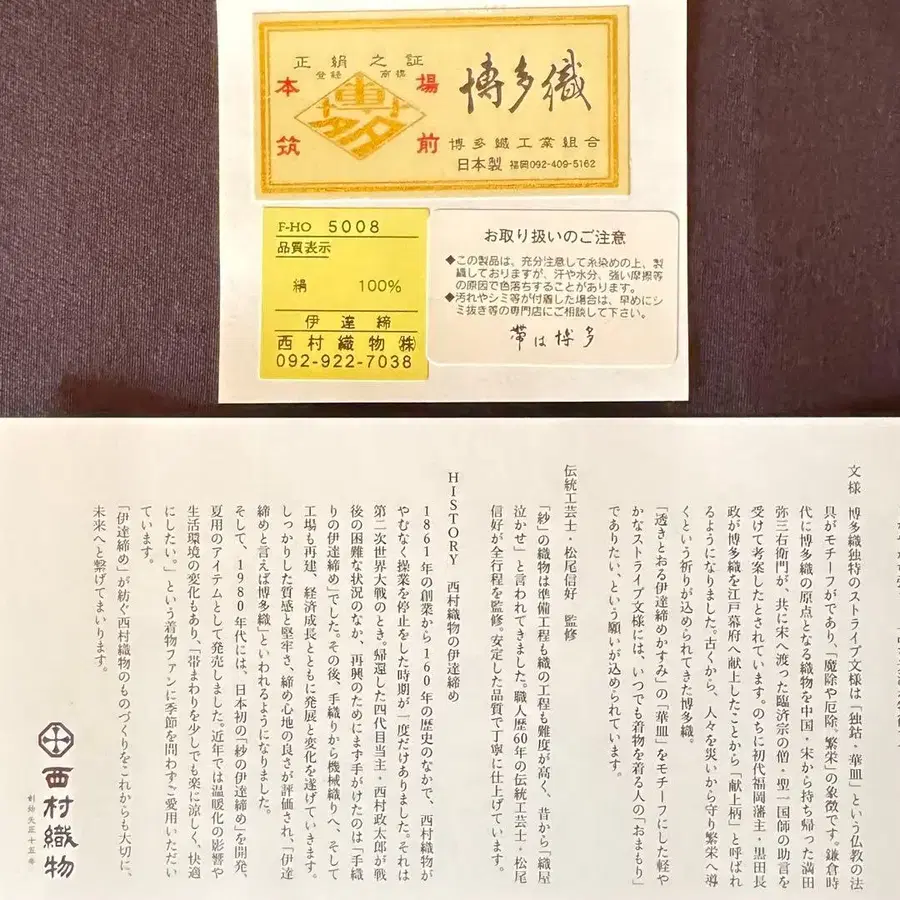 正絹之証
登録商標
本場
筑前
博多織
博多織工業組合
日本製 福岡092-409-5162
F-HO 5008
品質表示
絹 100%
伊達締
西村織物㈱
092-922-7038
お取り扱いのご注意
◆この製品は、充分注意して糸染めの上、製
織しておりますが、汗や水分、強い摩擦等
の原因で色落ちすることがあります。
◆汚れやシミ等が付着した場合は、早めにシ
ミ抜き等の専門店にご相談して下さい。
帯は博多
文様 博多織独特のストライプ文様は「独鈷・華皿」という仏教の法
具がモチーフがであり、「魔除や厄除、繁栄」の象徴です。鎌倉時
代に博多織の原点となる織物を中国・宋から持ち帰った満田
弥三右衛門が、共に宋へ渡った臨済宗の僧・聖一国師の助言を
受けて考案したとされています。のちに初代福岡藩主・黒田長
政が博多織を江戸幕府へ献上したことから「献上柄」と呼ばれ
るようになりました。古くから、人々を災いから守り繁栄へ導
くという祈りが込められてきた博多織。
「透きとおる伊達締めかすみ」の「華皿」をモチーフにした軽や
かなストライプ文様には、いつでも着物を着る人の「おまもり」
でありたい、という願いが込められています。
伝統工芸士・松尾信好 監修
「紗」の織物は準備工程も織の工程も難度が高く、昔から「織屋
泣かせ」と言われてきました。職人歴60年の伝統工芸士・松尾
信好が全行程を監修。安定した品質で丁寧に仕上げています。
HISTORY 西村織物の伊達締め
1861年の創業から160年の歴史のなかで、西村織物が
やむなく操業を停止をした時期が一度だけありました。それは
第二次世界大戦のとき。帰還した四代目当主・西村政太郎が戦
後の困難な状況のなか、再興のためにまず手がけたのは「手織
りの伊達締め」でした。その後、手織りから機械織りへ、そして
工場も再建、経済成長とともに発展と変化を遂げていきます。
しっかりした質感と堅牢さ、締め心地の良さが評価され、「伊達
締めと言えば博多織」といわれるようになりました。
そして、1980年代には、日本初の「紗の伊達締め」を開発、
夏用のアイテムとして発売しました。近年では温暖化の影響や
生活環境の変化もあり、「帯まわりを少しでも楽に涼しく、快適
にしたい。」という着物ファンに季節を問わずご愛用いただい
ています。
「伊達締め」が紡ぐ西村織物のものづくりをこれからも大切に、
未来へと繋げてまいります。
西村織物